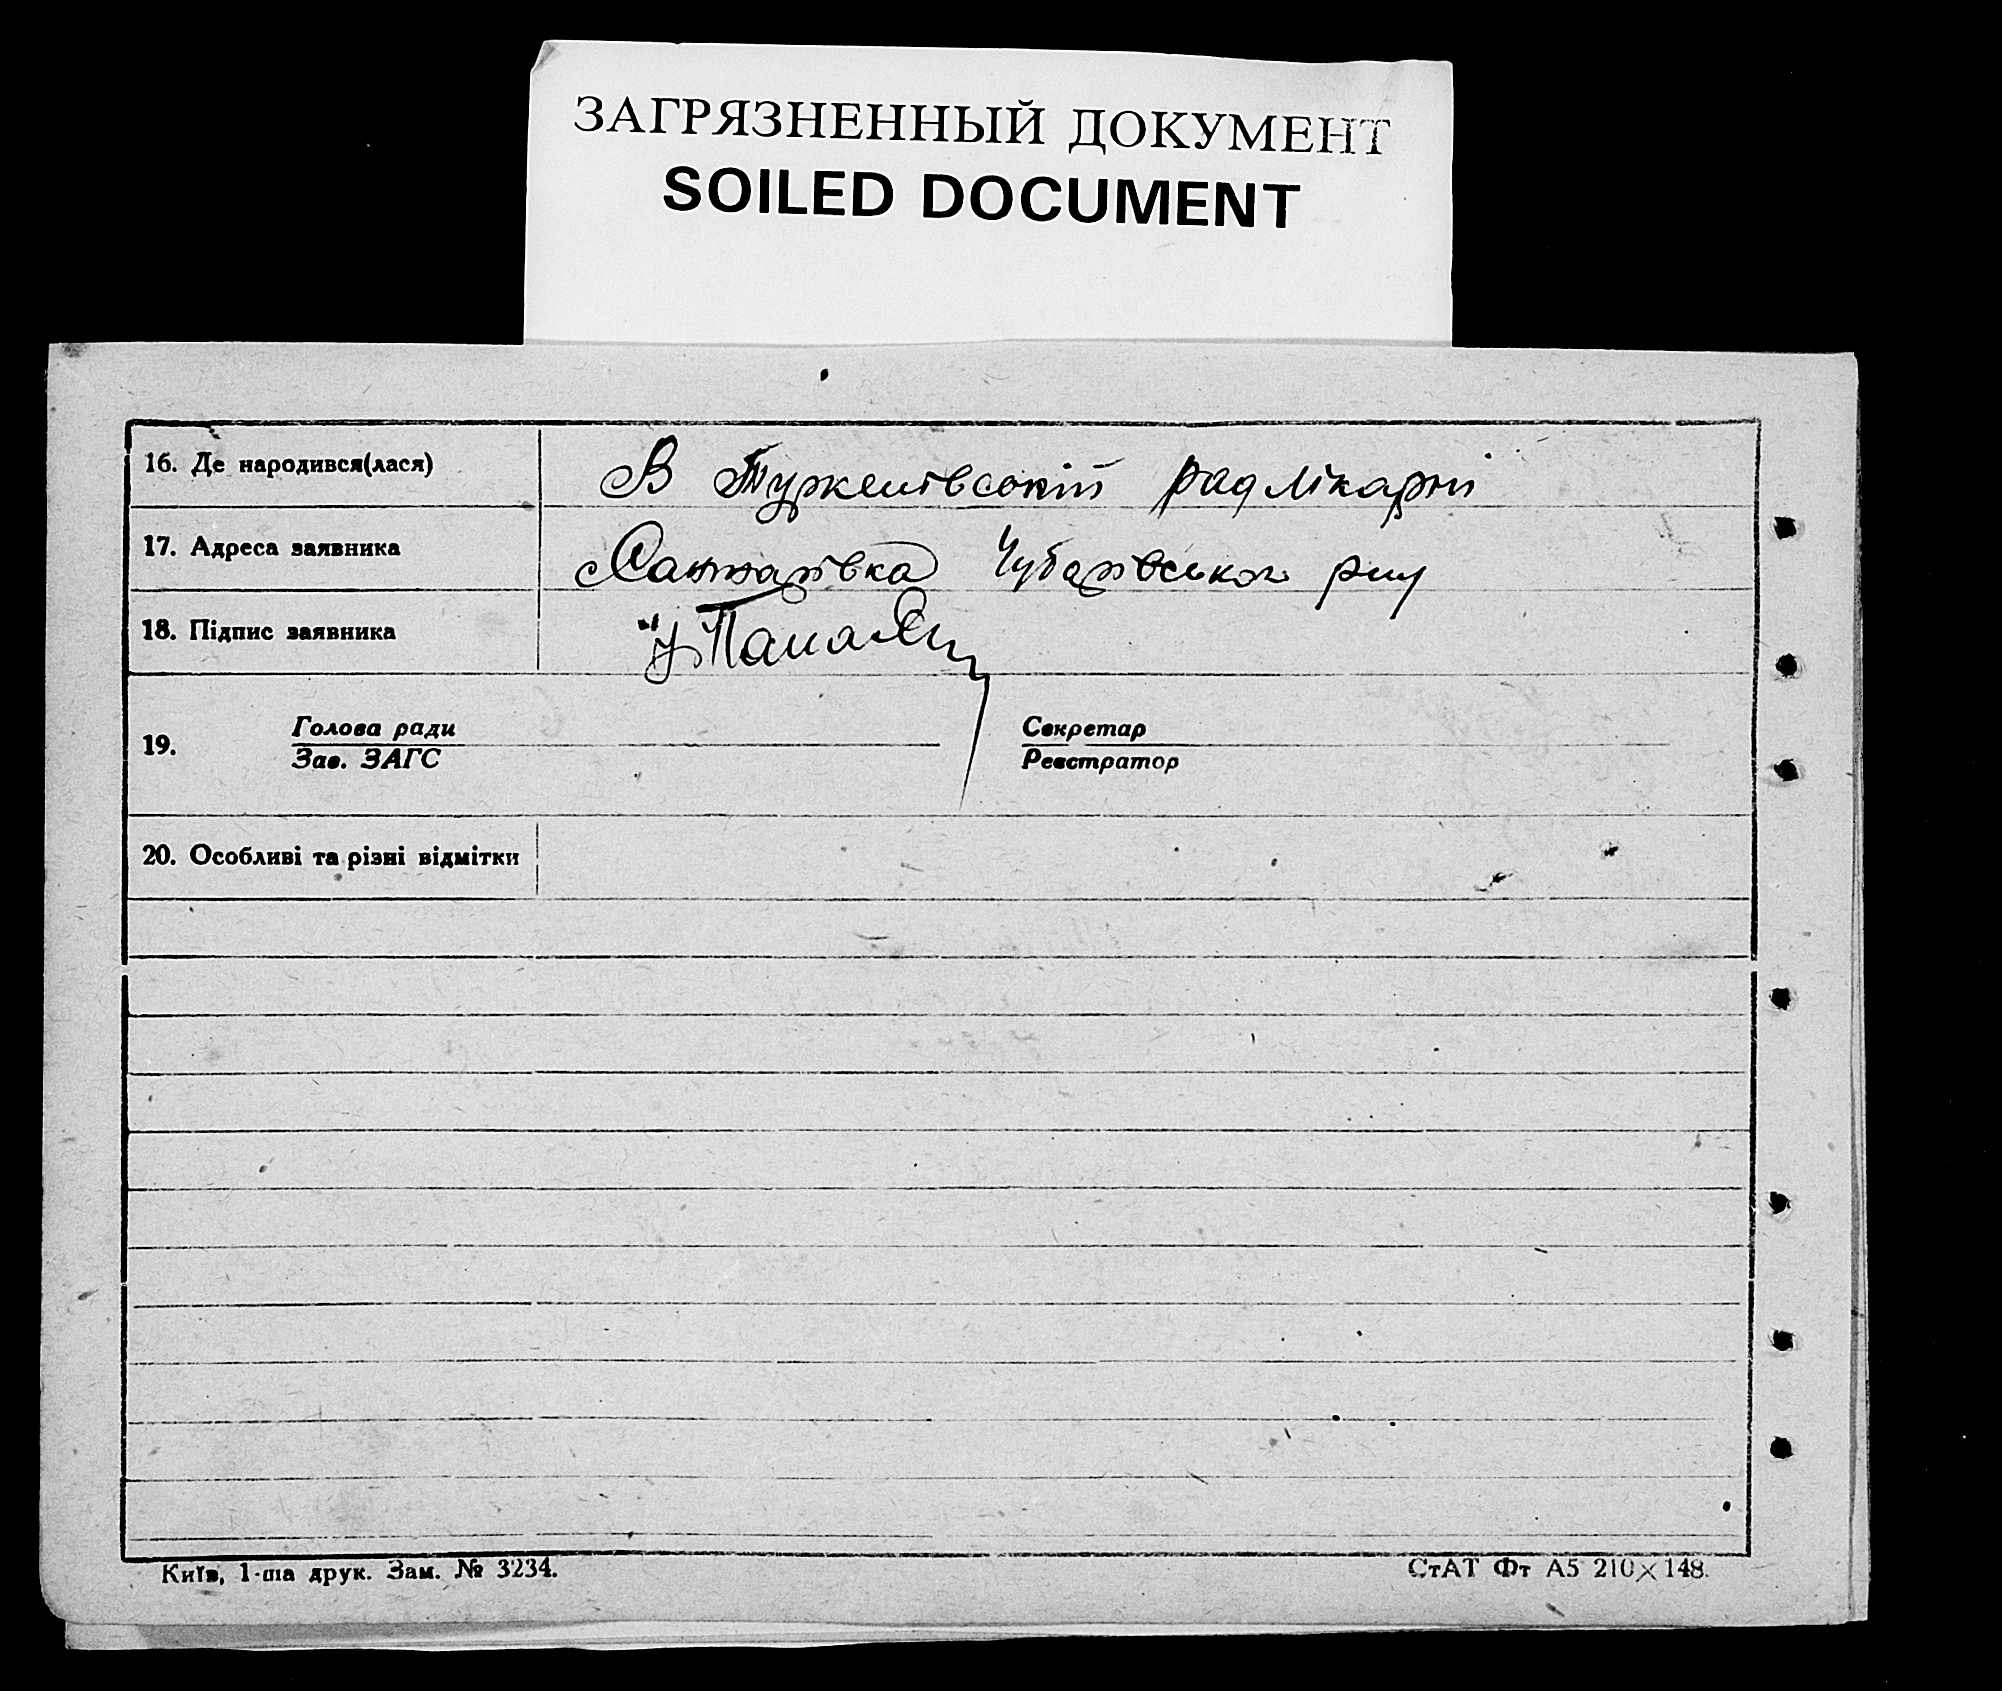 ЗАГРЯЗНЕННЫЙ ДОКУМЕНТ
SOILED DOCUMENT
16. Де народився(лася) В Туркенівській рад лікарні
17. Адреса заявника Чубарівського р-ну
18. Підпис заявника
19. Голова ради Секретар
Зав. ЗАГС Реєстратор
20. Особливі та різні відмітки
Київ, 1-ша друк. Зам. № 3234. СтАТ Фт А5 210×148.